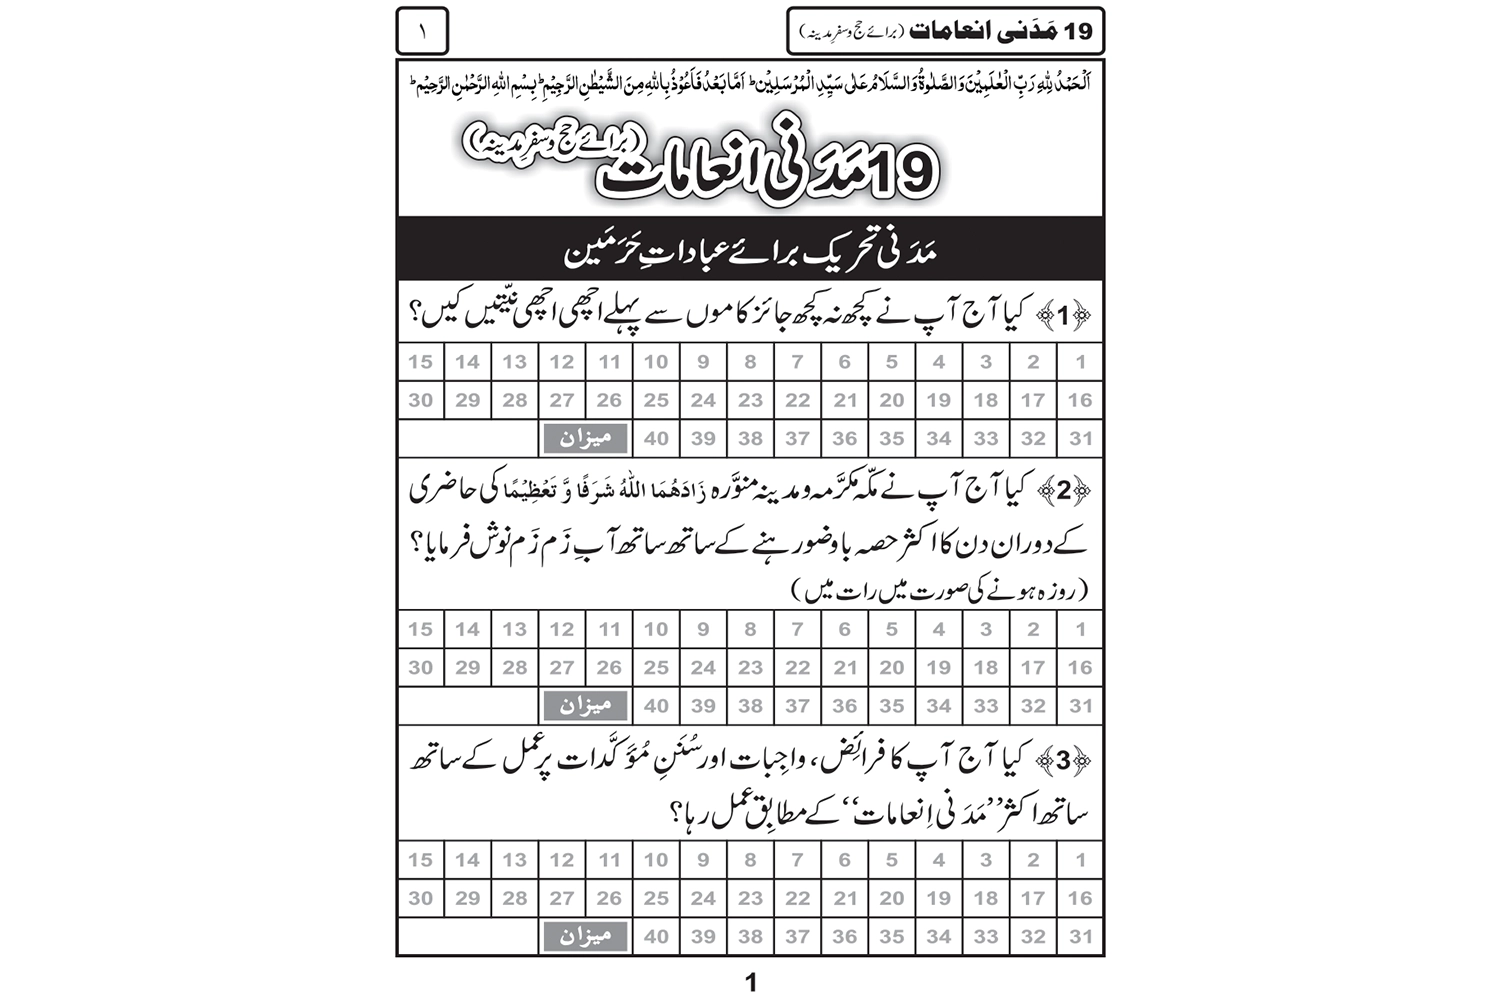 19 مَدَنی انعامات (برائے حج و سفرِ مدینہ)
۱
اَلْحَمْدُ لِلّٰهِ رَبِّ الْعٰلَمِیْنَ وَالصَّلٰوةُ وَالسَّلَامُ عَلٰی سَیِّدِ الْمُرْسَلِیْنَ ؕ اَمَّا بَعْدُ فَاَعُوْذُ بِاللّٰهِ مِنَ الشَّیْطٰنِ الرَّجِیْمِ ؕ بِسْمِ اللّٰهِ الرَّحْمٰنِ الرَّحِیْمِ ؕ
19 مَدَنی انعامات (برائے حج و سفرِ مدینہ)
مَدَنی تحریک برائے عباداتِ حَرَمَین
﴿1﴾ کیا آج آپ نے کچھ نہ کچھ جائز کاموں سے پہلے اچھی اچھی نیّتیں کیں؟
1 2 3 4 5 6 7 8 9 10 11 12 13 14 15
16 17 18 19 20 21 22 23 24 25 26 27 28 29 30
31 32 33 34 35 36 37 38 39 40 میزان
﴿2﴾ کیا آج آپ نے مکّہ مکرَّمہ و مدینہ منوَّرہ زَادَهُمَا اللّٰهُ شَرَفًا وَّ تَعْظِیْمًا کی حاضری
کے دوران دن کا اکثر حصہ باوضو رہنے کے ساتھ ساتھ آبِ زَم زَم نوش فرمایا؟
(روزہ ہونے کی صورت میں رات میں)
1 2 3 4 5 6 7 8 9 10 11 12 13 14 15
16 17 18 19 20 21 22 23 24 25 26 27 28 29 30
31 32 33 34 35 36 37 38 39 40 میزان
﴿3﴾ کیا آج آپ کا فرائض، واجبات اور سُنَنِ مُؤَکَّدات پر عمل کے ساتھ
ساتھ اکثر ’’مَدَنی اِنعامات‘‘ کے مطابِق عمل رہا؟
1 2 3 4 5 6 7 8 9 10 11 12 13 14 15
16 17 18 19 20 21 22 23 24 25 26 27 28 29 30
31 32 33 34 35 36 37 38 39 40 میزان
1